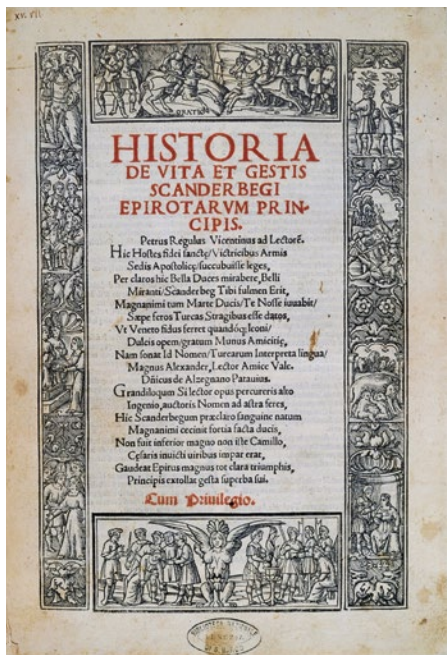 XV. VII
ORATIO
HISTORIA
DE VITA ET GESTIS
SCANDERBEGI
EPIROTARVM PRIN-
CIPIS.
Petrus Regulus Vicentinus ad Lectorē.
Hic Hostes fidei sanctę/Victricibus Armis
Sedis Apostolicę/succubuisse leges,
Per claros hic Bella Duces mirabere, Belli
Miranti/Scanderbeg Tibi fulmen Erit,
Magnanimi tum Marte Ducis/Te Nosse iuuabit/
Sæpe feros Turcas Stragibus esse datos,
Vt Veneto fidus ferret quandoq; leoni/
Dulcis opem/gratum Munus Amicitię,
Nam sonat Id Nomen/Turcarum Interpreta lingua/
Magnus Alexander, Lector Amice Vale.
Dñicus de Alzegnano Patauius.
Grandiloquum Si lector opus percureris alto
Ingenio, auctoris Nomen ad astra feres,
Hic Scanderbegum præclaro sanguine natum
Magnanimi cecinit fortia facta ducis,
Non fuit inferior magno non iste Camillo,
Cęsaris inuicti uiribus impar erat,
Gaudeat Epirus magnus tot clara triumphis,
Principis extollat gesta superba sui.
Cum Priuilegio.